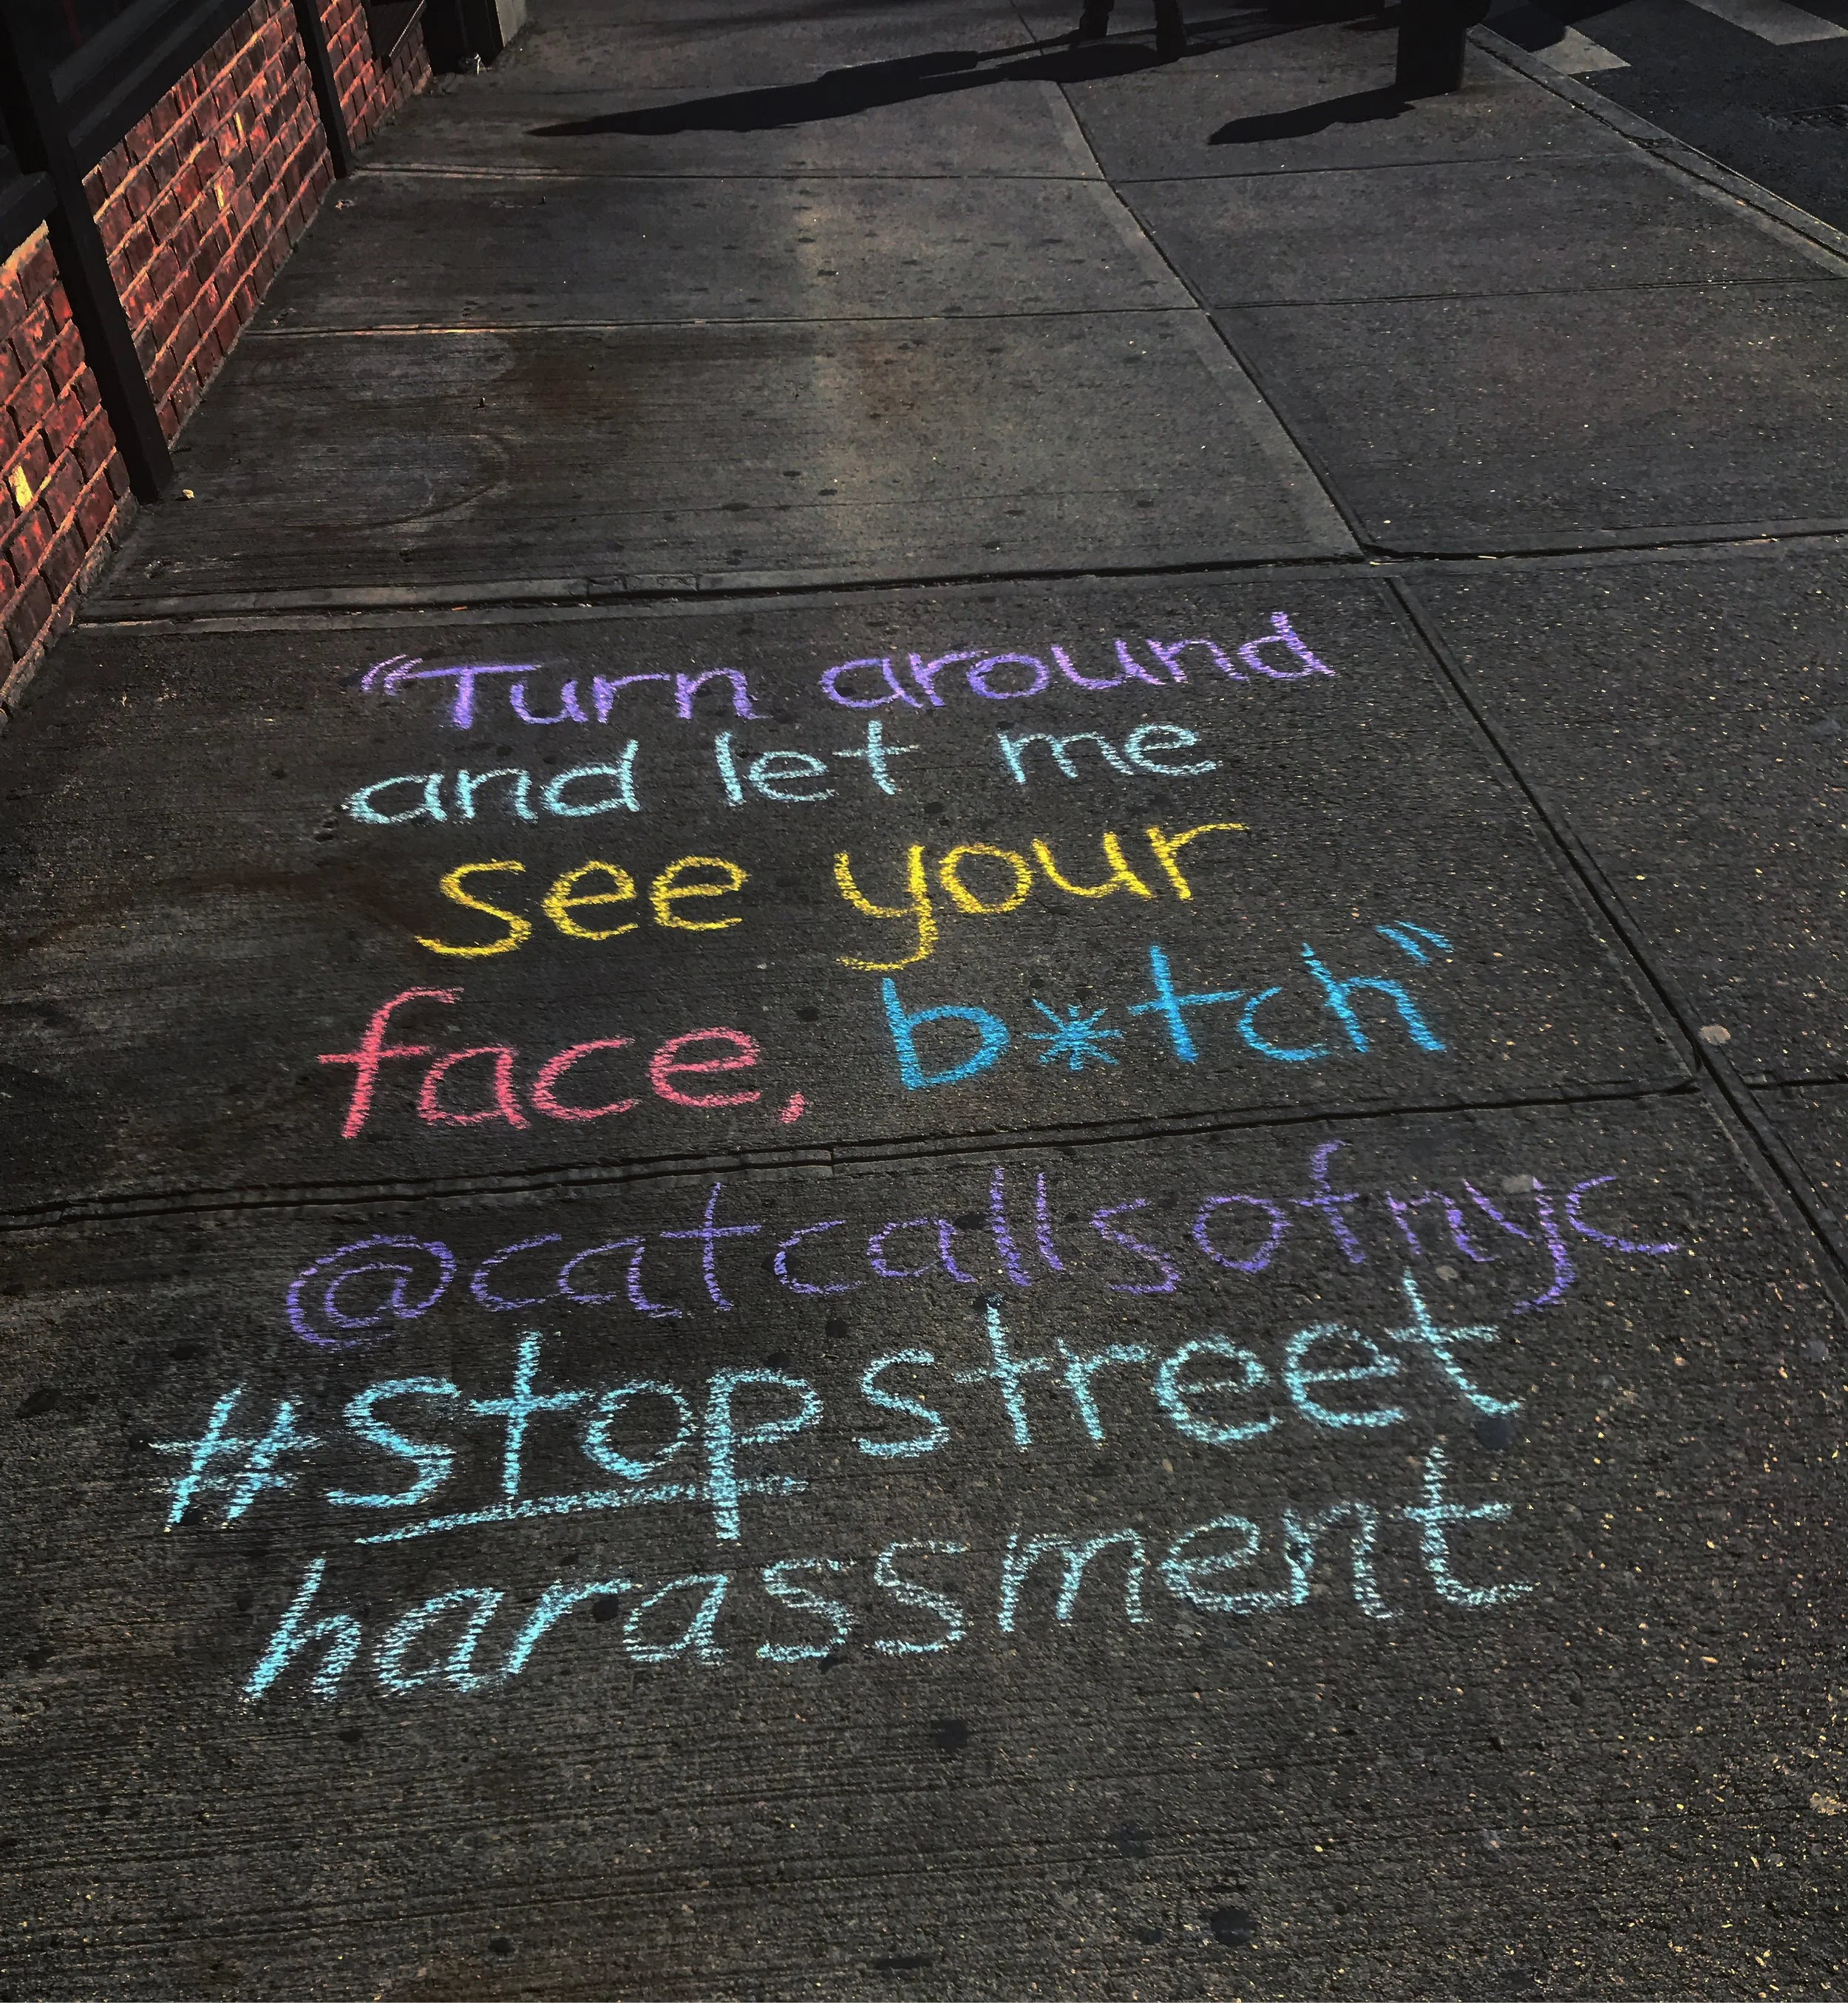 “Turn around
and let me
see your
face, b*tch”
@catcallsofnyc
#stopstreet
harassment